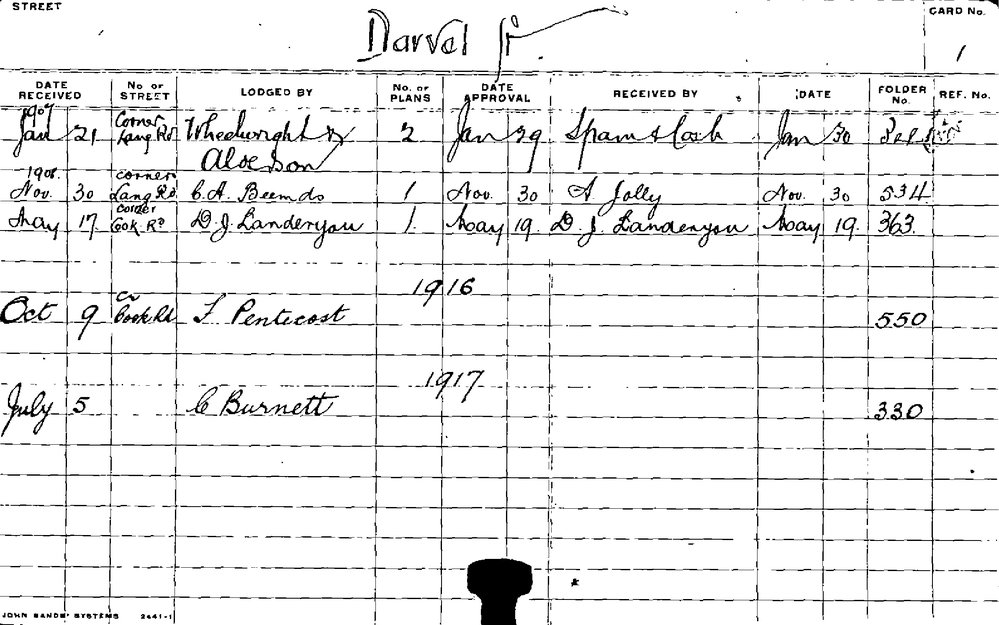 STREET
CARD No.
Darvel St.
1
DATE RECEIVED No. OF STREET LODGED BY No. OF PLANS DATE APPROVAL RECEIVED BY DATE FOLDER No. REF. No.
1907 Corner
Jan 21 Lang Rd Wheelwright & 2 Jan 29 Spam & Cash Jan 30
Alderson
1908. corner
Nov. 30 Lang Rd. C. A. Beemds 1 Nov. 30 A. Jolly Nov. 30 534
corner
May 17. Cook Rd D. J. Landeryou 1. May 19. D. J. Landeryou May 19. 363.
1916
Cr
Oct 9 Cook Rd F Pentecost 550
1917
July 5 C Burnett 330
JOHN SANDS' SYSTEMS 2441-1